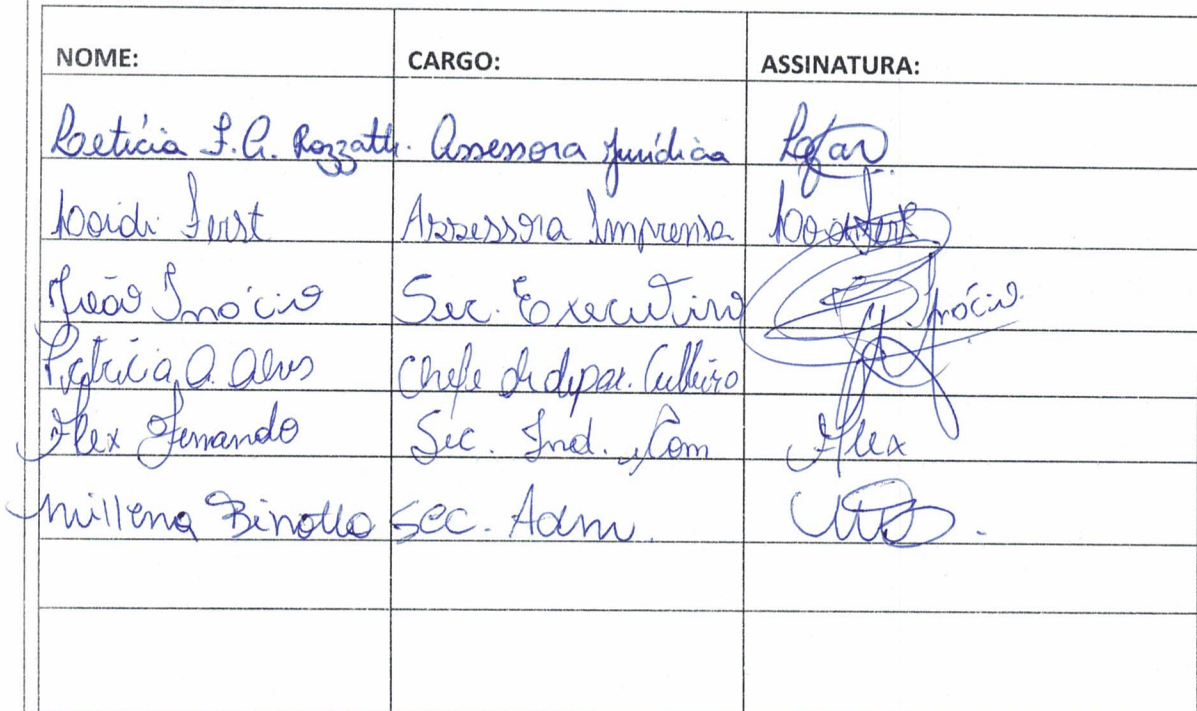 NOME: CARGO: ASSINATURA:
Laeticia F. A. Rozzatti. Assessora Jurídica
Ferst Assessora Imprensa
João Inácio Sec. Executivo Inácio
Patrícia A. Alves Chefe de depar.
Alex Fernando Sec. Ind. Com Alex
Millena Binotto Sec. Adm.